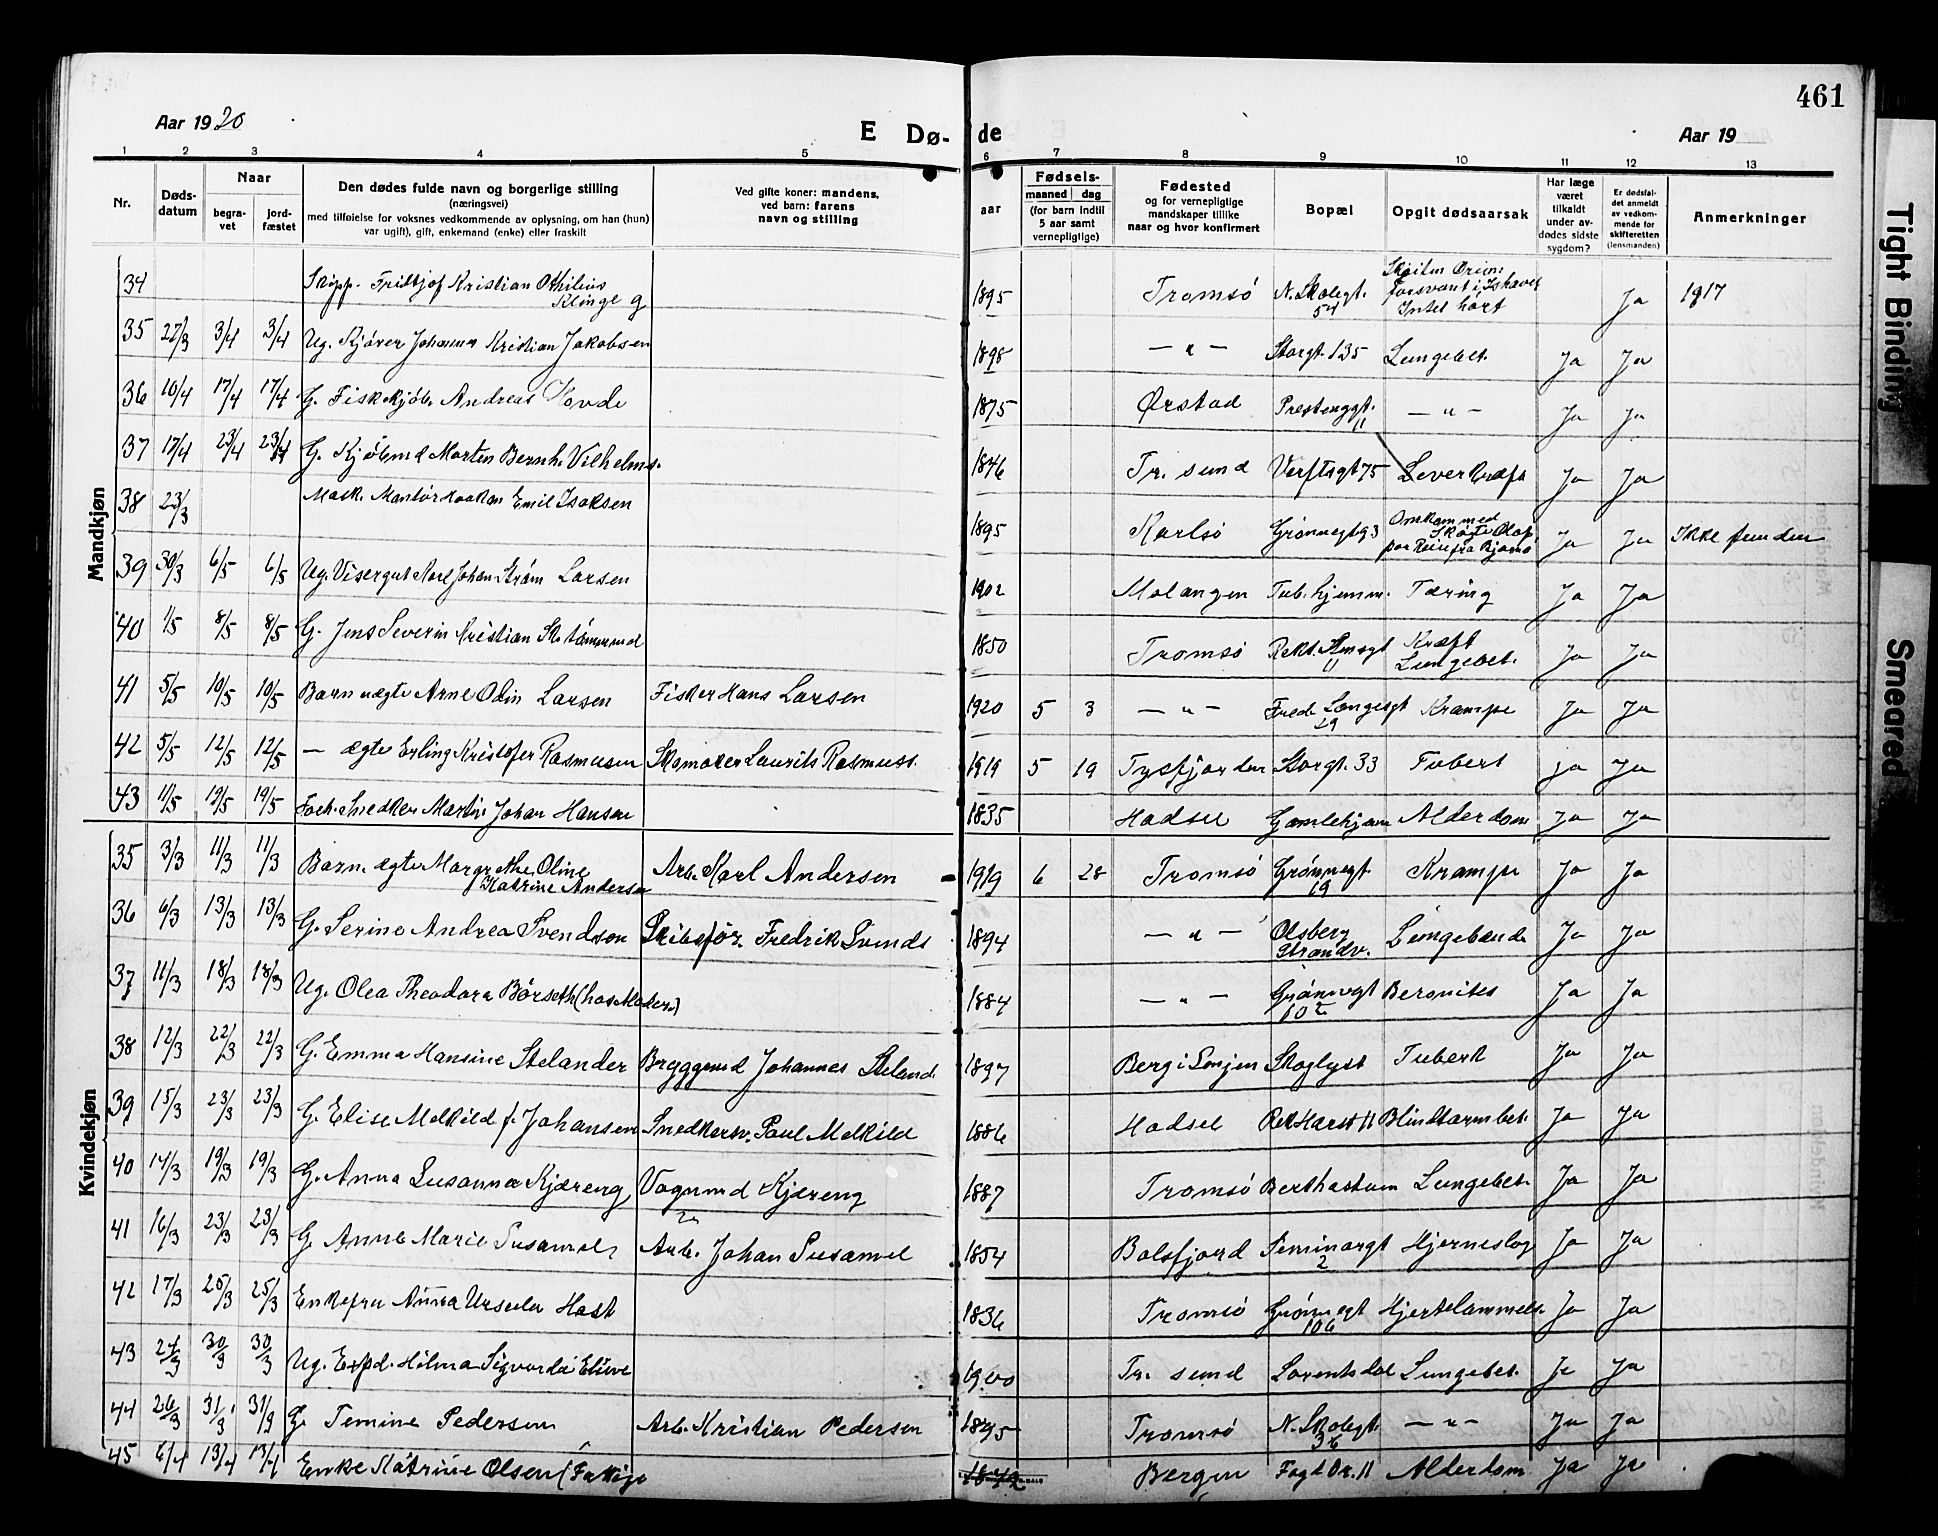 461
Aar 1920
E Dø-
de
Aar 19
1 2 3 4 5 6 7 8 9 10 11 12 13
Nr.
Døds-
datum
Naar
begra-
vet
jord-
fæstet
Den dødes fulde navn og borgerlige stilling
(næringsvei)
med tilføielse for voksnes vedkommende av oplysning, om han (hun)
var ugift), gift, enkemand (enke) eller fraskilt
Ved gifte koner: mandens,
ved barn: farens
navn og stilling
aar
Fødsels-
maaned dag
(for barn indtil
5 aar samt
vernepligtige)
Fødested
og for vernepligtige
mandskaper tillike
naar og hvor konfirmert
Bopæl
Opgit dødsaarsak
Har læge
været
tilkaldt
under av-
dødes sidste
sygdom?
Er dødsfal-
det anmeldt
av vedkom-
mende for
skifteretten
(lensmanden)
Anmerkninger
Mandkjøn
34 Skipp. Fridtjof Kristian Othilius
Klinge g 1895 Tromsø N. Skolegt. 54 Skøiten Ørnen
forsvant i Ishavet
Intet hørt Ja 1917
35 27/3 3/4 3/4 Ug. Kjører Johannes Kristian Jakobsen 1898 — " — Storgt. 135 Lungebet. Ja Ja
36 10/4 17/4 17/4 G. Fiskekjøb. Andreas Hovde 1875 Ørstad Prestenggt. 11 — " — Ja Ja
37 17/4 23/4 23/4 G. Kjøbmd Morten Bernh. Vilhelms. 1846 Tr. sund Verftsgt 75 Leverkræft Ja Ja
38 23/3 Mask. Montør Haakon Emil Isaksen 1895 Karlsø Grønnegt 93 Omkom med
Skøite Olaf
paa Reise fra Bjørnø Ja Ja Ikke funden
39 30/3 6/5 6/5 Ug. Visergut Karl Johan Strøm Larsen 1902 Malangen Tub. hjemm. Tæring Ja Ja
40 1/5 8/5 8/5 G. Jens Severin Kristian Sk. tømmermd 1850 Tromsø Rekt. Steensgt 11 Kræft
Lungebet. Ja Ja
41 5/5 10/5 10/5 Barn ægte Arne Odin Larsen Fisker Hans Larsen 1920 5 3 — " — Fredr. Langesgt 29 Krampe Ja Ja
42 5/5 12/5 12/5 — ægte Erling Kristofer Rasmusen Skomaker Laurits Rasmuss. 1919 5 19 Tysfjorden Storgt. 33 Tuberk Ja Ja
43 11/5 19/5 19/5 Forh. Snedker Martin Johan Hansen 1835 Hadsel Gamlehjem Alderdom Ja Ja
Kvindekjøn
35 3/3 11/3 11/3 Barn ægte Margrethe Oline
Katrine Andersen Arb. Karl Andersen 1919 6 28 Tromsø Grønnegt. 19 Krampe Ja Ja
36 6/3 13/3 13/3 G. Serine Andrea Svendsen Skibsfør. Fredrik Svends 1894 — " — Olsborg
Strandv. Lungebænde Ja Ja
37 11/3 18/3 18/3 Ug. Olea Theodora Børseth (hos Moder) 1884 — " — Grønnegt 102 Bronites Ja Ja
38 12/3 22/3 22/3 G. Emma Hansine Stelander Bryggemd Johannes Steland. 1897 Berg i Senjen Skoglyst Tuberk Ja Ja
39 15/3 23/3 23/3 G. Elise Melkild f. Johansen Snedkersv. Paul Melkild 1886 Hadsel Rek Harst 11 Blindtarmbet. Ja Ja
40 14/3 19/3 19/3 G. Anna Susanna Kjæreng Vognmd Kjæreng 1887 Tromsø Berthastuen Lungebet. Ja Ja
41 16/3 23/3 23/3 G. Anne Marie Susamel Arb. Johan Susamel 1854 Balsfjord Seminargt 2 Hjerneslag Ja Ja
42 17/3 25/3 25/3 Enkefru Anna Ursula Hast 1836 Tromsø Grønnegt 106 Hjertelammelse Ja Ja
43 24/3 30/3 30/3 Ug. Expd. Hilma Sigvarda Eline 1900 Tr. sund Lorentsdal Lungebet. Ja Ja
44 26/3 31/3 31/3 G. Temine Pedersen Arb. Kristian Pedersen 1895 Tromsø N. Skolegt. 36 — " — Ja Ja
45 6/4 13/4 13/4 Enke Katrine Olsen Bergen Fogd Dr. 11 Alderdom Ja Ja
Tight Binding
Smeared